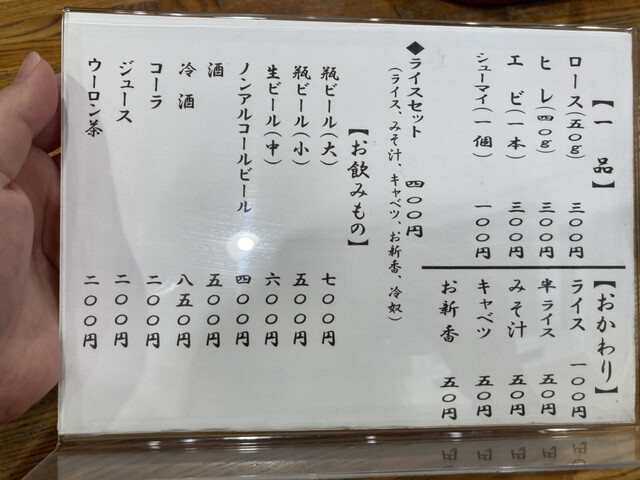 【一品】
ロース(五〇g) 三〇〇円
ヒレ(四〇g) 三〇〇円
エビ(一本) 三〇〇円
シューマイ(一個) 一〇〇円
【おかわり】
ライス 一〇〇円
半ライス 五〇円
みそ汁 五〇円
キャベツ 五〇円
お新香 五〇円
◆ライスセット 四〇〇円
(ライス、みそ汁、キャベツ、お新香、冷奴)
【お飲みもの】
瓶ビール(大) 七〇〇円
瓶ビール(小) 五〇〇円
生ビール(中) 六〇〇円
ノンアルコールビール 四〇〇円
酒 五〇〇円
冷酒 八五〇円
コーラ 二〇〇円
ジュース 二〇〇円
ウーロン茶 二〇〇円